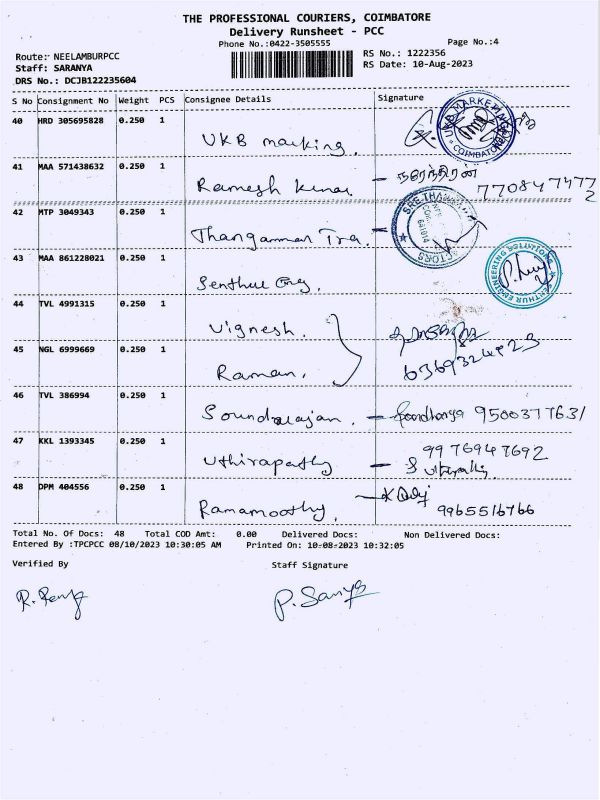 THE PROFESSIONAL COURIERS, COIMBATORE
Delivery Runsheet - PCC
Phone No.:0422-3505555
Page No.:4
Route:- NEELAMBURPCC
RS No.: 1222356
Staff: SARANYA
RS Date: 10-Aug-2023
DRS No.: DCJB122235604
S No Consignment No Weight PCS Consignee Details Signature
40 HRD 305695828 0.250 1
UKB marking.
UKB MARKETING
COIMBATORE
41 MAA 571438632 0.250 1
Ramesh Kumar - நரேந்திரன்
7708474772
42 MTP 3049343 0.250 1
Thangamman Tra.
43 MAA 861228021 0.250 1
Senthur Eng.
ENGINEERING SOLUTIONS
44 TVL 4991315 0.250 1
Vignesh.
45 NGL 6999669 0.250 1
Raman.
6369324823
46 TVL 386994 0.250 1
Soundarajan. - 9500377631
47 KKL 1393345 0.250 1
Uthirapathy - 9976947692
48 DPM 404556 0.250 1
Ramamoothy. 9965516766
Total No. Of Docs: 48 Total COD Amt: 0.00 Delivered Docs: Non Delivered Docs:
Entered By :TPCPCC 08/10/2023 10:30:05 AM Printed On: 10-08-2023 10:32:05
Verified By Staff Signature